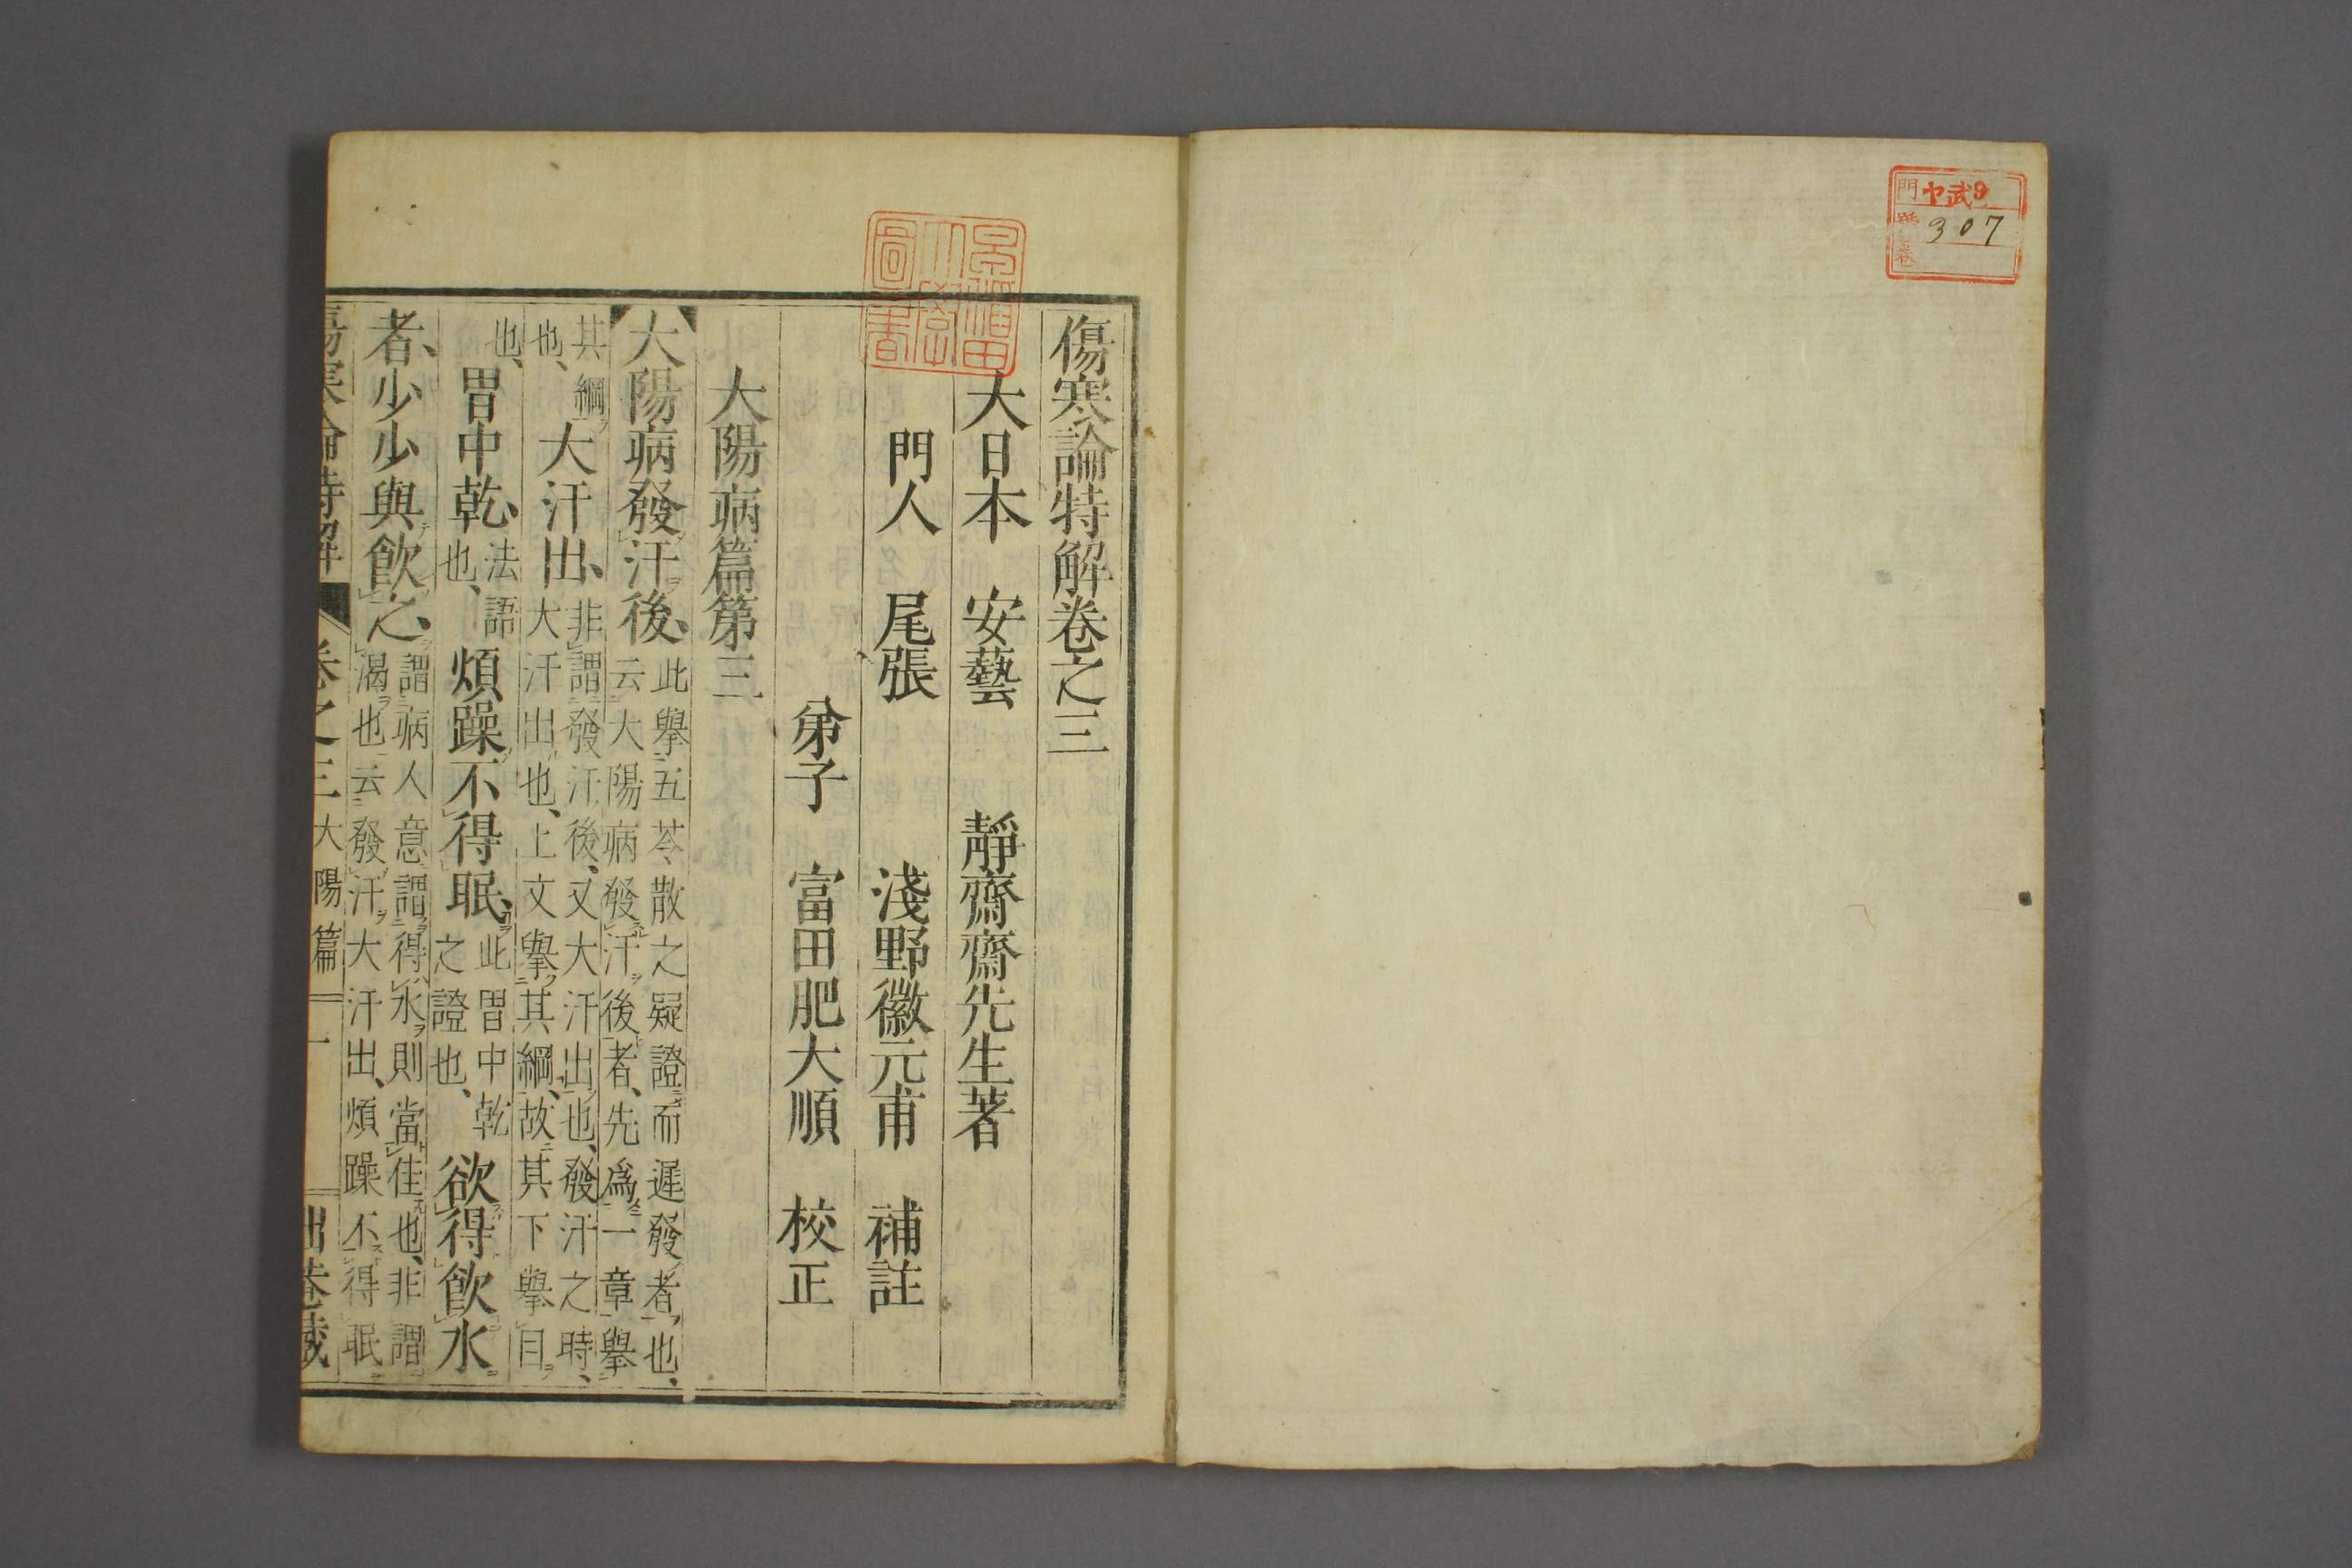 門 ヤ武9
號 307
卷
傷寒論特解卷之三
大日本 安藝 靜齋齋先生著
門人 尾張 淺野徽元甫 補註
弟子 富田肥大順 校正
大陽病篇第三
大陽病發汗後、此擧五苓散之疑證而遲發者也、云大陽病發汗後者、先爲一章擧
其綱也、大汗出、非謂發汗後、又大汗出也、發汗之時、大汗出也、上文擧其綱、故其下擧目
也、胃中乾、法語也、煩躁不得眠、此胃中乾之證也、欲得飮水
者、少少與飮之、謂病人意謂得水則當佳也、非謂渴也云發汗大汗出、煩躁不得眠
傷寒論特解 卷之三 大陽篇 一